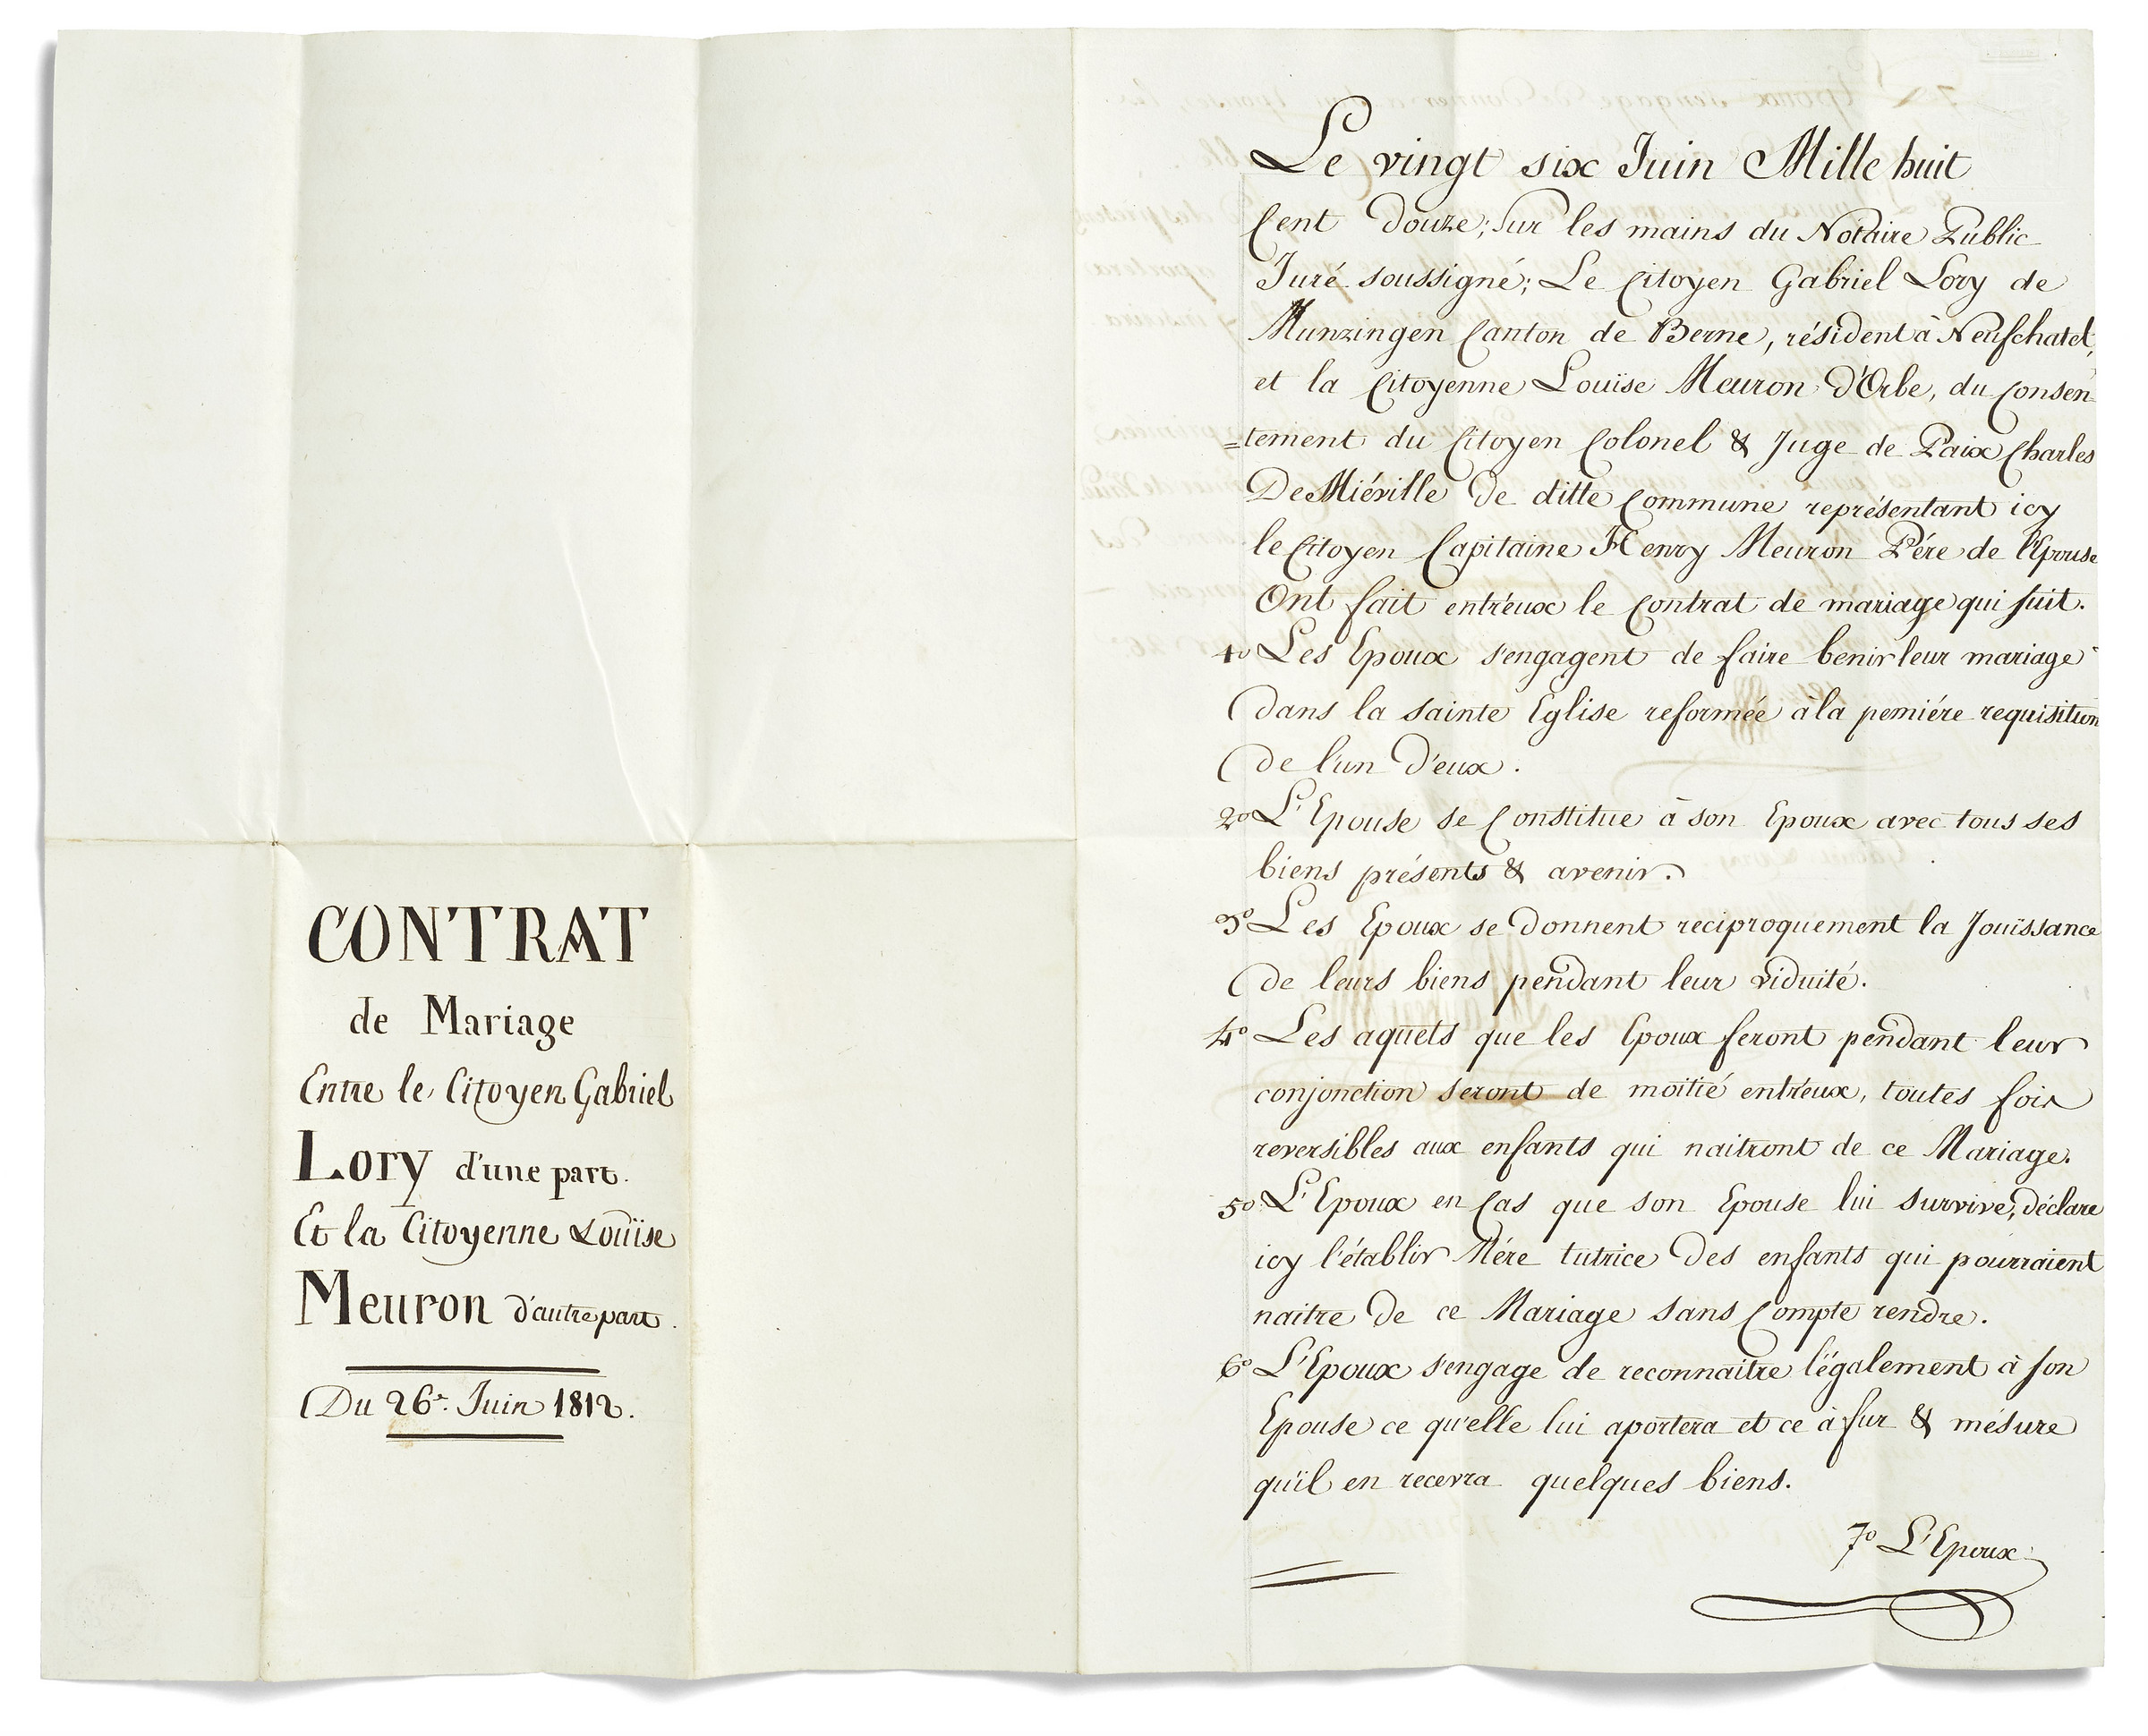 CONTRAT
de Mariage
Entre le Citoyen Gabriel
Lory d'une part.
Et la Citoyenne Louïse
Meuron d'autre part.
Du 26e. Juin 1812.
Le vingt six Juin Mille huit
Cent Douze; Sur les mains du Notaire Public
Juré soussigné; Le Citoyen Gabriel Lory de
Munzingen Canton de Berne, résident à Neufchatel,
et la Citoyenne Louïse Meuron d'Orbe, du Consen
=tement du Citoyen Colonel & Juge de Paix Charles
De Miéville de ditte Commune représentant icy
le Citoyen Capitaine Henry Meuron Pére de l'Epouse
Ont fait entr'eux le Contrat de mariage qui suit.
1o Les Epoux s'engagent de faire benir leur mariage
Dans la sainte Eglise reformée à la pemiére requisition
De l'un D'eux.
2o L'Epouse se Constitue à son Epoux avec tous ses
biens présents & avenir.
3o Les Epoux se Donnent reciproquement la Jouïssance
De leurs biens pendant leur viduité.
4o Les aquets que les Epoux feront pendant leur
conjonction seront de moitié entr'eux, toutes fois
reversibles aux enfants qui naitront de ce Mariage.
5o L'Epoux en Cas que son Epouse lui survive, déclare
icy l'établir Mére tutrice Des enfants qui pourraient
naitre De ce Mariage sans Compte rendre.
6o L'Epoux s'engage de reconnaitre légalement à son
Epouse ce qu'elle lui aportera et ce à fur & mésure
qu'il en recevra quelques biens.
7o L'Epoux